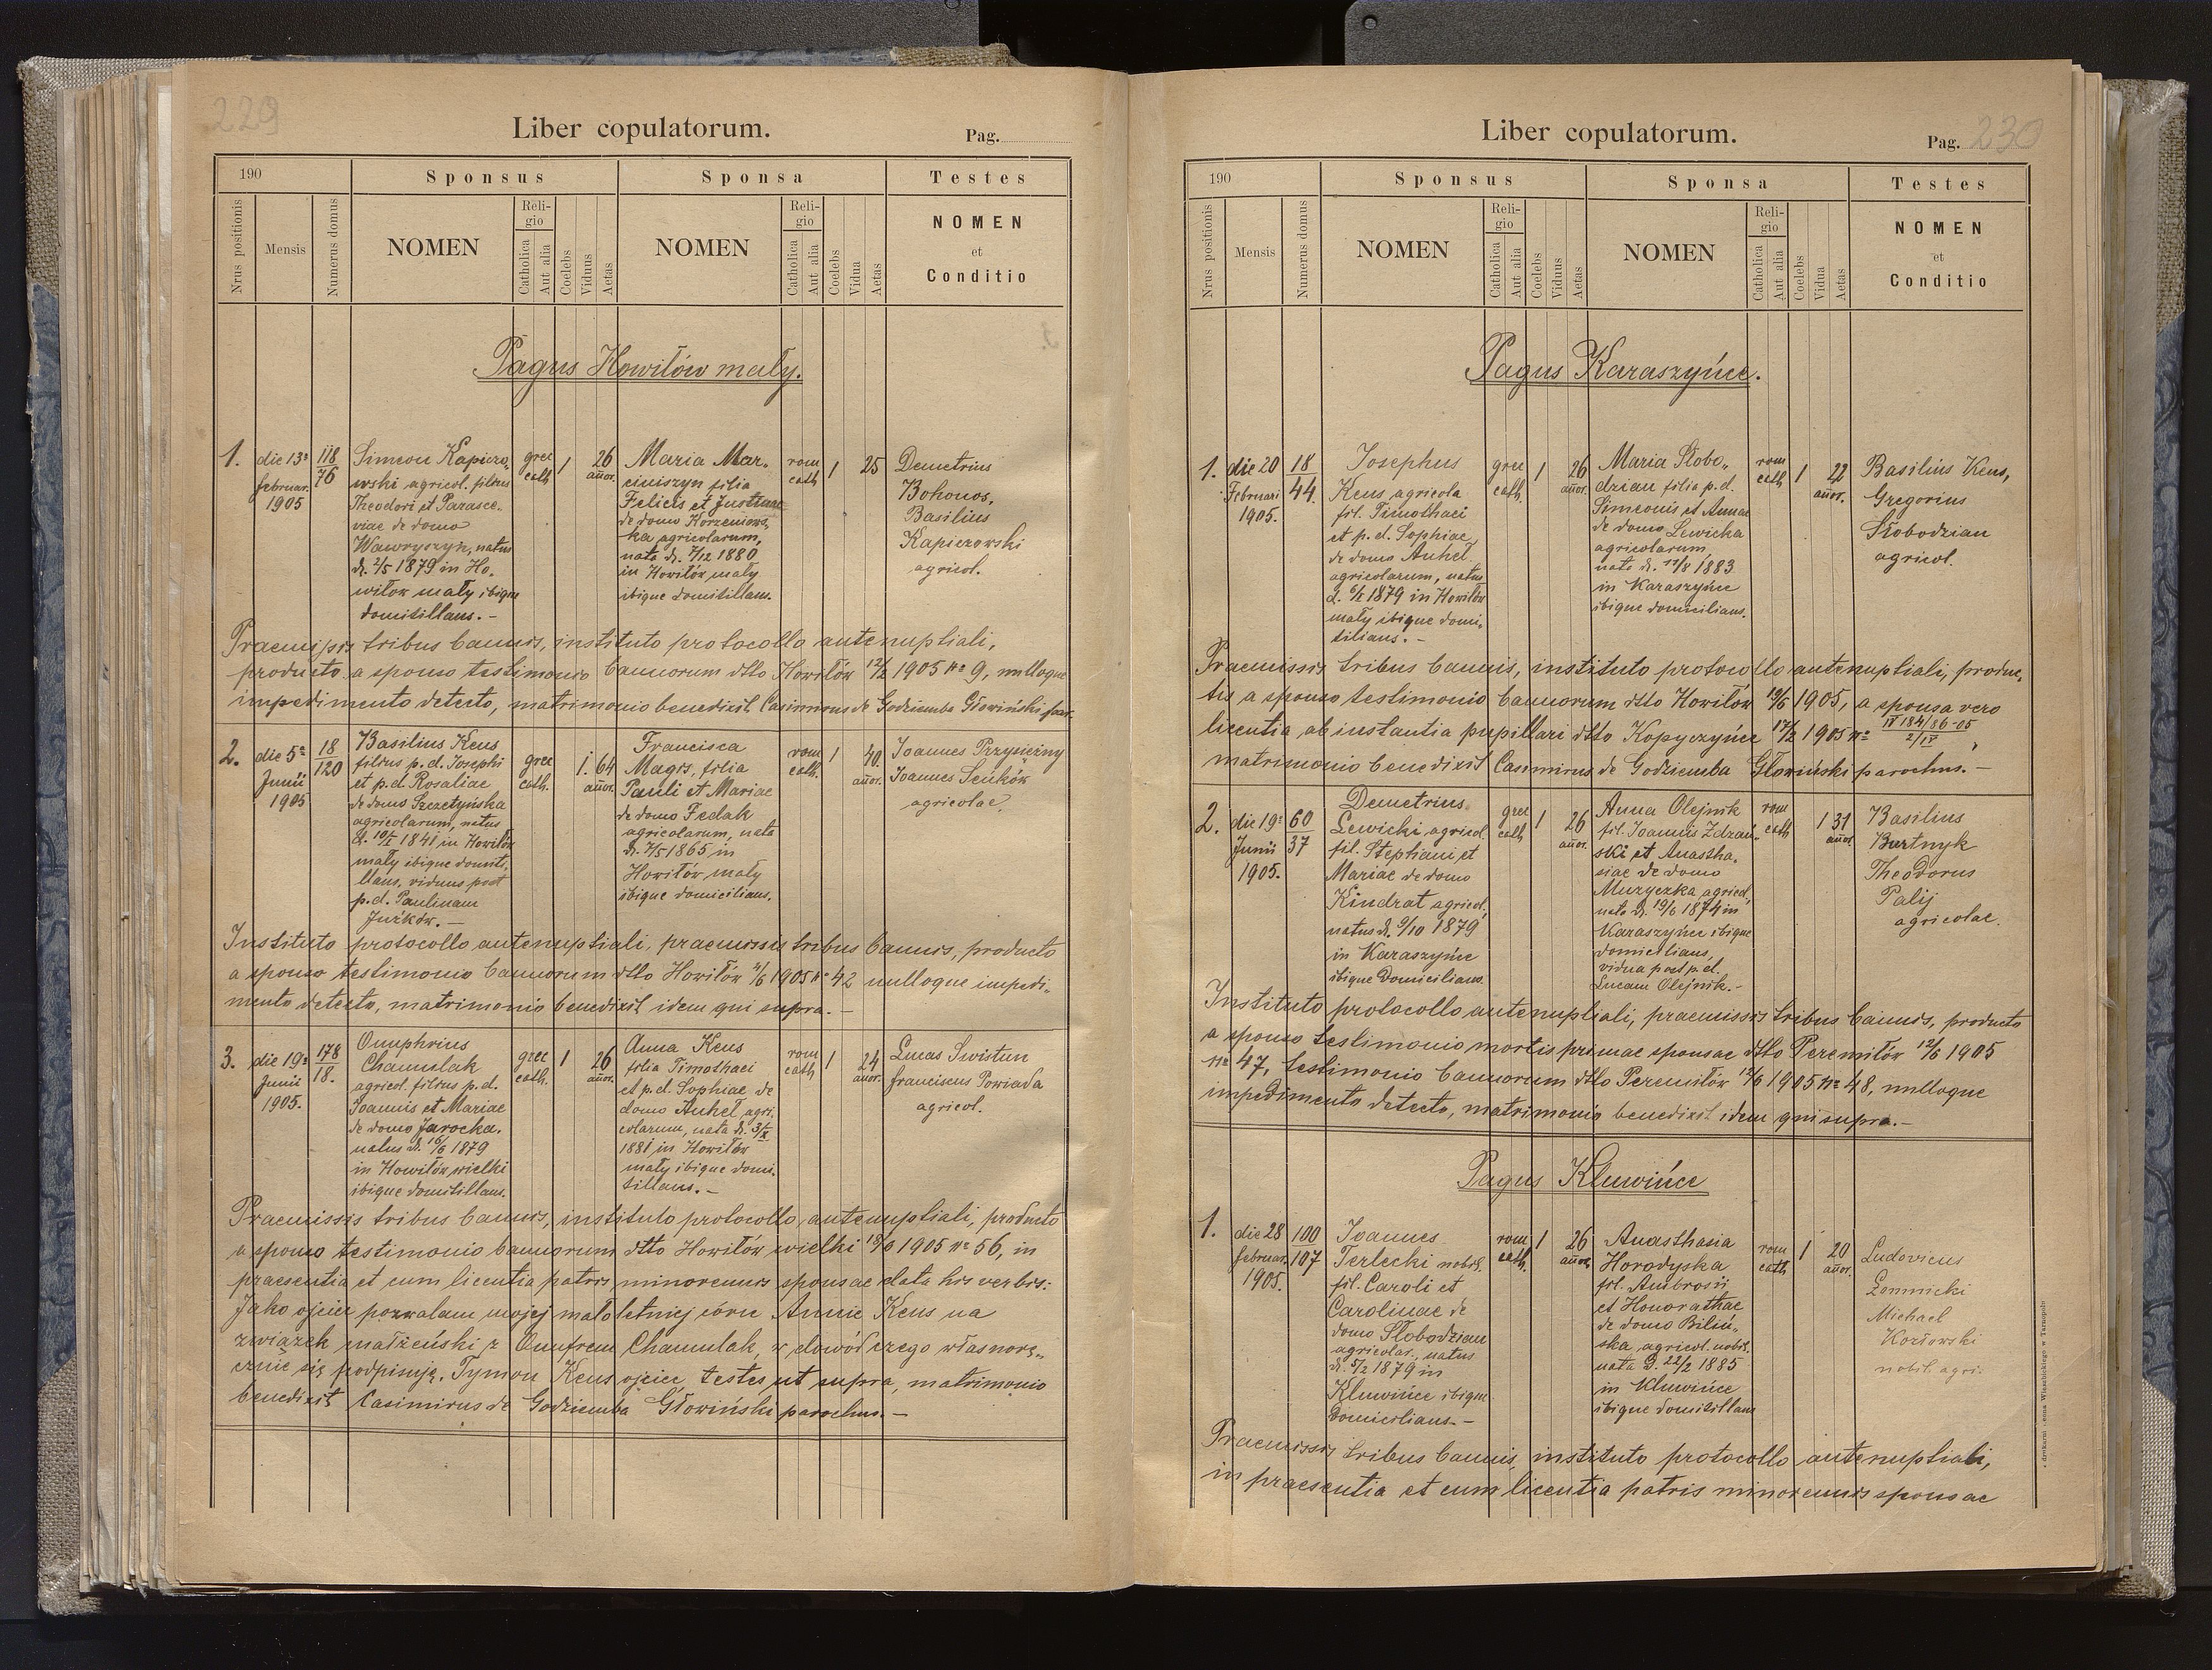 229
Liber copulatorum.
Pag.
190
Sponsus
Sponsa
Testes
Nrus positionis
Mensis
Numerus domus
NOMEN
Religio
Catholica
Aut alia
Coelebs
Viduus
Aetas
NOMEN
Religio
Catholica
Aut alia
Coelebs
Vidua
Aetas
NOMEN
et
Conditio
Pagus Howiłów mały.
1.
die 13a
februar.
1905
118
76
Simeon Kapiczo„
wski agricol. filius
Theodori et Parasce„
viae de domo
Wawryszyn, natus
d. 2/5 1879 in Ho„
wiłów mały ibique
domitillans. –
grec
cath
1
26
anor.
Maria Mar„
ciniszyn filia
Felicis et Justinae
de domo Korzeniows„
ka agricolarum,
nata d. 7/12 1880
in Howiłów mały
ibique domitillans.
rom
cath
1
25
Demetrius
Bohonos,
Basilius
Kapiczowski
agricol.
Praemissis tribus bannis, instituto protocollo antenuptiali,
producto a sponso testimonio bannorum dtto Howiłów 12/2 1905 No 9, nulloque
impedimento detecto, matrimonio benedixit Casimirus de Godziemba Głowiński par.
2.
die 5a
Junii
1905
18
120
Basilius Keus
filius p.d. Josephi
et p.d. Rosaliae
de domo Szczetyńska
agricolarum, natus
d. 10/I 1841 in Howiłów
mały ibique domiti„
llans, viduus post
p.d. Paulinam
Jurków. –
grec
cath.
1.
64
anor.
Francisca
Magis, filia
Pauli et Mariae
de domo Fedak
agricolarum, nata
d. 7/5 1865 in
Howiłów mały
ibique domicilians.
rom
cath.
1
40.
anor.
Joannes Przysiężny
Joannes Seńków
agricolae.
Instituto protocollo antenuptiali, praemissis tribus bannis, producto
a sponso testimonio bannorum dtto Howiłów 4/6 1905 No 42 nulloque impedi„
mento detecto, matrimonio benedixit idem qui supra. –
3.
die 19a
Junii
1905.
178
18.
Onuphrius
Chamulak
agricol. filius p.d.
Joannis et Mariae
de domo Jarocka.
natus d. 16/6 1879
in Howiłów wielki
ibique domitillans.
grec
cath.
1
26
anor.
Anna Keus
filia Timothaei
et p.d. Sophiae de
domo Anhel agri„
colarum, nata d. 3/X
1881 in Howiłów
mały ibique domi„
tillans. –
rom
cath
1
24
anor.
Lucas Swistun
franciscus Powiada
agricol.
Praemissis tribus bannis, instituto protocollo, antenuptiali, producto
a sponso testimonio bannorum dtto Howiłów wielki 18/6 1905 No 56, in
praesentia et cum licentia patris minorennis sponsae data his verbis:
Jako ojciec pozwalam mojej małoletniej córce Annie Keus na
związek małżeński z Onufrem Chamulak, w dowód czego własnorę„
cznie się podpisuję. Tymon Keus ojciec, testes ut supra, matrimonio
benedixit Casimirus de Godziemba Głowiński parochus. –
Liber copulatorum.
Pag. 230
190
Sponsus
Sponsa
Testes
Nrus positionis
Mensis
Numerus domus
NOMEN
Religio
Catholica
Aut alia
Coelebs
Viduus
Aetas
NOMEN
Religio
Catholica
Aut alia
Coelebs
Vidua
Aetas
NOMEN
et
Conditio
Pagus Karaszyńce.
1.
die 20
Februari
1905.
18
44.
Josephus
Keus agricola
fil. Timothaei
et p.d. Sophiae
de domo Anhel
agricolarum, natus
d. 6/I 1879 in Howiłów
mały ibique domi„
tilians. –
grec
cath.
1
26
anor.
Maria Słobo„
dzian filia p.d.
Simeonis et Annae
de domo Lewicka
agricolarum,
nata d. 17/8 1883
in Karaszyńce
ibique domicilians.
rom
cath
1
22
anor.
Basilius Keus,
Gregorius
Słobodzian
agricol.
Praemissis tribus bannis, instituto protocollo antenuptiali, produc„
tis a sponso testimonio bannorum dtto Howiłów 19/6 1905, a sponsa vero
licentia ab instantia pupillari dtto Kopyczyńce 17/2 1905 No IV 184/86-05 2/IV,
matrimonio benedixit Casimirus de Godziemba Głowiński parochus. –
2.
die 19a
Junii
1905.
60
37
Demetrius
Lewicki agricol.
fil. Stephani et
Mariae de domo
Kindrat agricol.
natus d. 9/10 1879
in Karaszyńce
ibique Domicilians.
grec
cath
1
26
anor.
Anna Olejnik
fil. Joannis Zdzań„
ski et Anastha„
siae de domo
Muzyczka agricol.
nata d. 19/6 1874 in
Karaszyńce ibique
domicilians,
vidua post p.d.
Lucam Olejnik. –
rom
cath
1
31
anor.
Basilius
Burtnyk
Theodorus
Palij
agricolae.
Instituto protocollo antenuptiali, praemissis tribus bannis, producto
a sponso testimonio mortis primae sponsae dtto Peremiłów 12/6 1905
No 47, testimonio bannorum dtto Peremiłów 12/6 1905 No 48, nulloque
impedimento detecto, matrimonio benedixit idem qui supra. –
Pagus Kluwińce
1.
die 28
februar.
1905.
100
107
Joannes
Terlecki nobil.
fil. Caroli et
Carolinae de
domo Słobodzian
agricolar., natus
d. 5/2 1879 in
Kluwińce ibique
Domicilians. –
rom
cath.
1
26
anor.
Anasthasia
Horodyska
fil. Ambrosii
et Honorathae
de domo Biliń„
ska agricol. nobil.
nata d. 22/2 1885
in Kluwińce
ibique domitillans
rom
cath
1
20
anor.
Ludovicus
Lemnicki
Michael
Kozłowski
nobil. agri.
Praemissis tribus bannis, instituto protocollo antenuptiali,
in praesentia et cum licentia patris minorennis sponsae